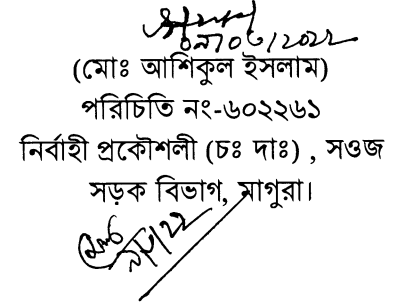 ০৯/০৬/২০২২
(মোঃ আশিকুল ইসলাম)
পরিচিতি নং-৬০২২৬১
নির্বাহী প্রকৌশলী (চঃ দাঃ) , সওজ
সড়ক বিভাগ, মাগুরা।